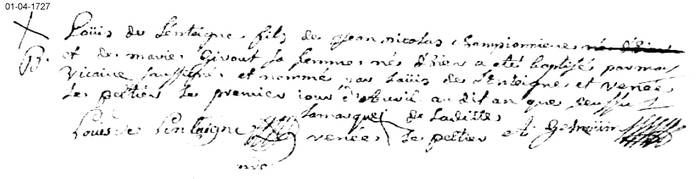 01-04-1727
Loüis de Lentaigne fils de Jean nicolas Championniere
et de marie Girout sa femme nés d'hier a été baptisé par moy
Vicaire soussigné et nommé par Loüis de Lentaigne et renée
Le peltier Le premier jour d'Avril au dit an que dessus
Lamarque de Laditte
Louis de Lentaigne renée Le peltier
vic